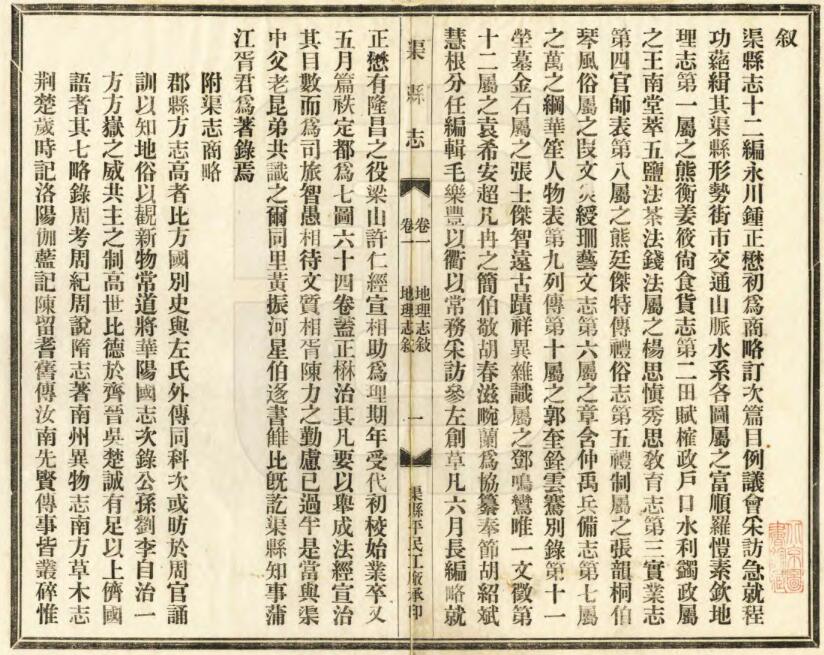 叙
渠縣志十二編永川鍾正懋初爲商略訂次篇目例議會采訪急就程
功蕝緝其渠縣形勢街市交通山脈水系各圖屬之富順羅愷素欽地
理志第一屬之熊衡姜筱尙食貨志第二田賦榷政戶口水利蠲政屬
之王南堂萃五鹽法茶法錢法屬之楊思慎秀思敎育志第三實業志
第四官師表第八屬之熊廷傑特傳禮俗志第五禮制屬之張韻桐伯
琴風俗屬之段文炎綬珊藝文志第六屬之章含仲禹兵備志第七屬
之萬之綱華笙人物表第九列傳第十屬之郭奎銓雲騫別錄第十一
塋墓金石屬之張士傑智遠古蹟祥異雜識屬之鄧鳴鸞唯一文徵第
十二屬之袁希安超凡冉之簡伯敬胡春滋畹蘭爲協纂奉節胡紹斌
慧根分任編輯毛樂豐以衢以常務采訪參左創草凡六月長編略就
正懋有隆昌之役梁山許仁經宣相助爲理期年受代初稜始業卒又
五月篇袟定都爲七圖六十四卷蓋正楙治其凡要以舉成法經宣治
其日數而爲司旅智愚相待文質相胥陳力之勤慮已過半是當與渠
中父老昆弟共識之爾同里黃振河星伯遂書雔比旣訖渠縣知事蒲
江胥君爲著錄焉
附渠志商略
郡縣方志高者比方國別史與左氏外傳同科次或昉於周官誦
訓以知地俗以觀新物常道將華陽國志次錄公孫劉李自治一
方方嶽之威共主之制高世比德於齊晉吳楚誠有足以上儕國
語者其七略錄周考周紀周說隋志著南州異物志南方草木志
荆楚歲時記洛陽伽藍記陳留耆舊傳汝南先賢傳事皆叢碎惟
渠縣志
卷一 地理志敍
卷一 地理志敍
一
渠縣平民工廠承印